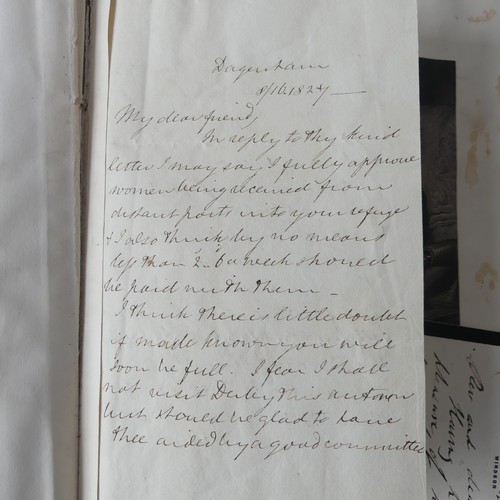 Dagenham
8/16.1827
My dear friend,
In reply to thy kind
letter I may say I fully approve
women being received from
distant parts into your refuge
& I also think by no means
less than 2..6 a week should
be paid with them –
I think there is little doubt
if made known you will
soon be full. I fear I shall
not visit Derby this autumn
but should be glad to have
thee aided by a good committee